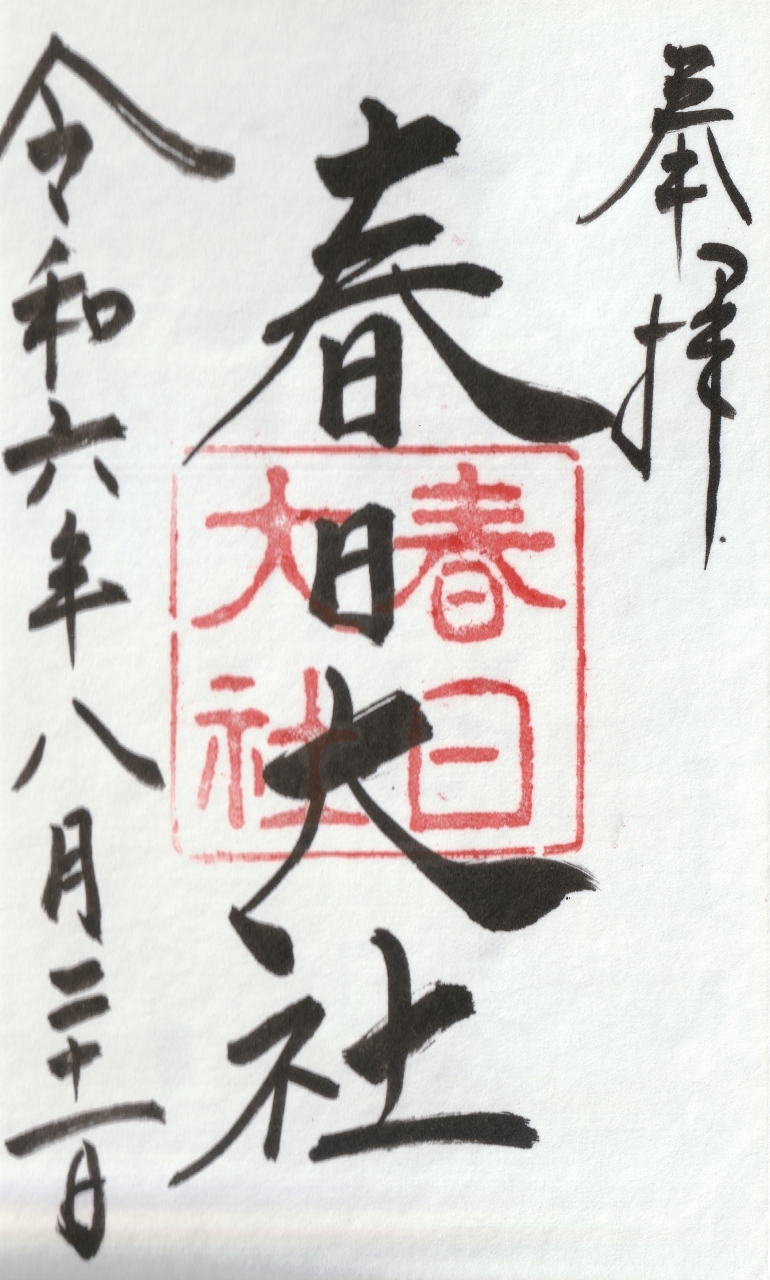 奉拝
春日大社
春日
大社
令和六年八月二十一日